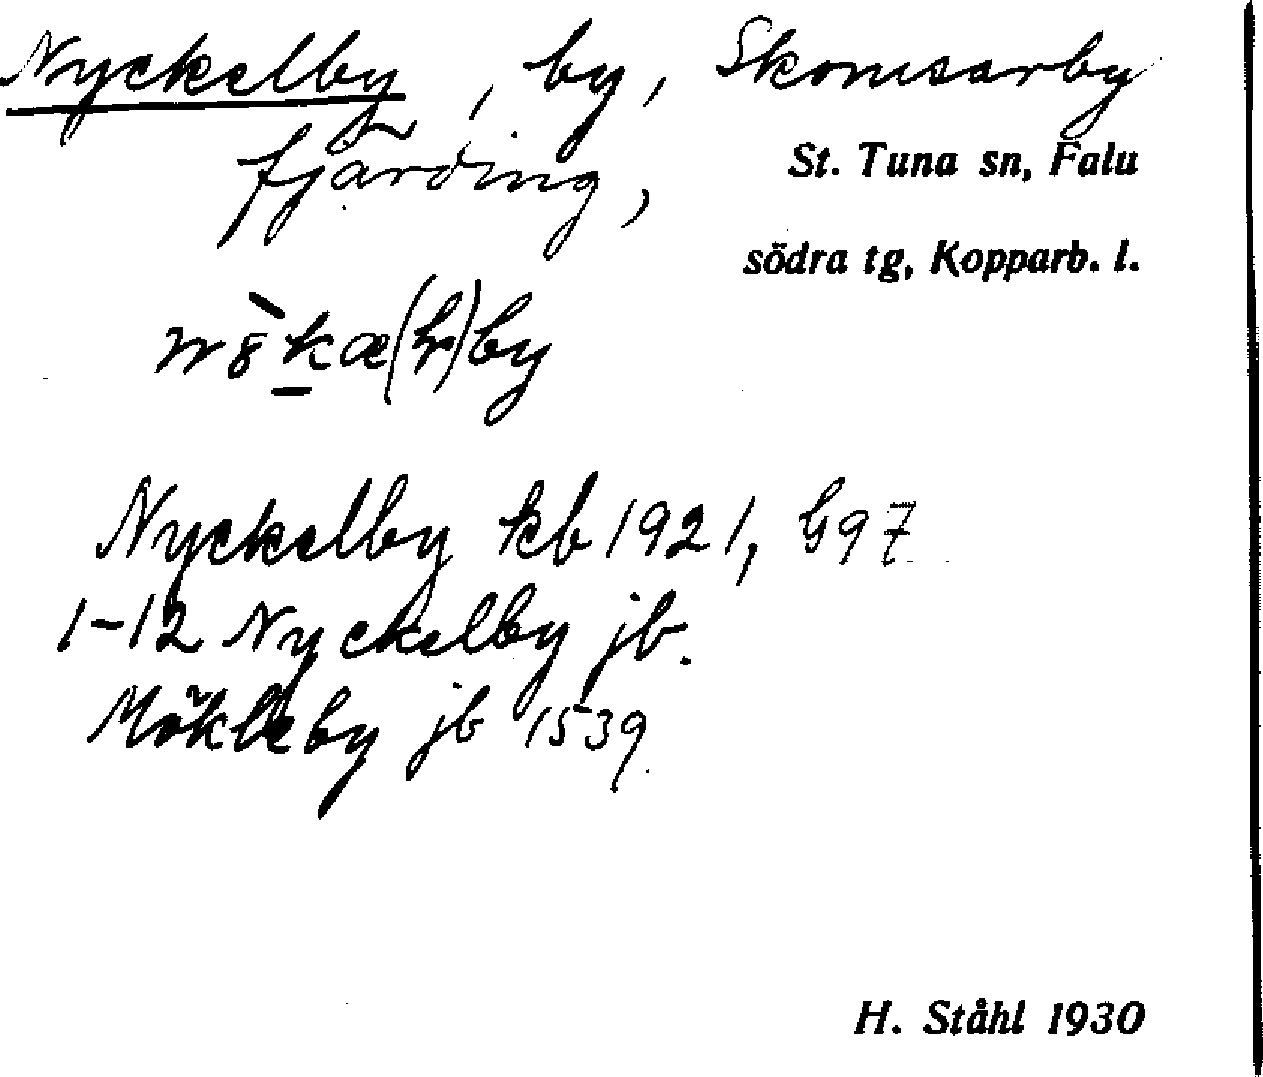 Nyckelby, by, Skomsarby
fjärding,
St. Tuna sn, Falu
södra tg, Kopparb. l.
Nyckelby kb 1921, G97
1-12 Nyckelby jb.
Mökleby jb 1539
H. Ståhl 1930